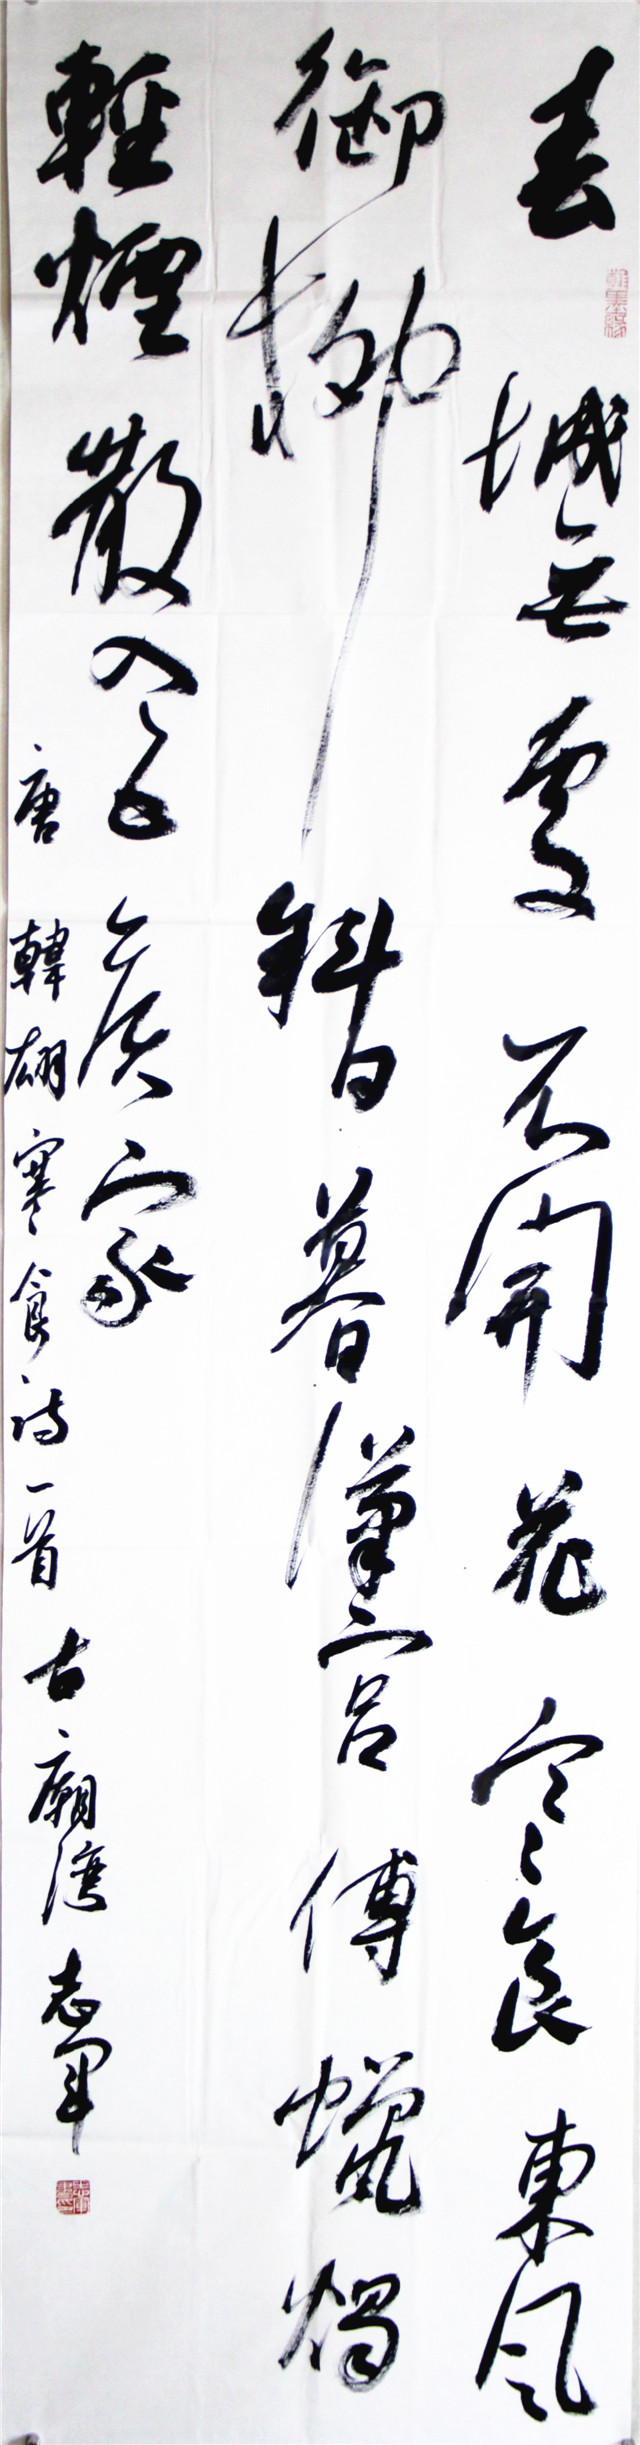 春城無處不開花寒食東風
御柳斜日暮漢宮傳蠟燭
輕煙散入五侯家
唐韓翃寒食詩一首古廟灣志軍